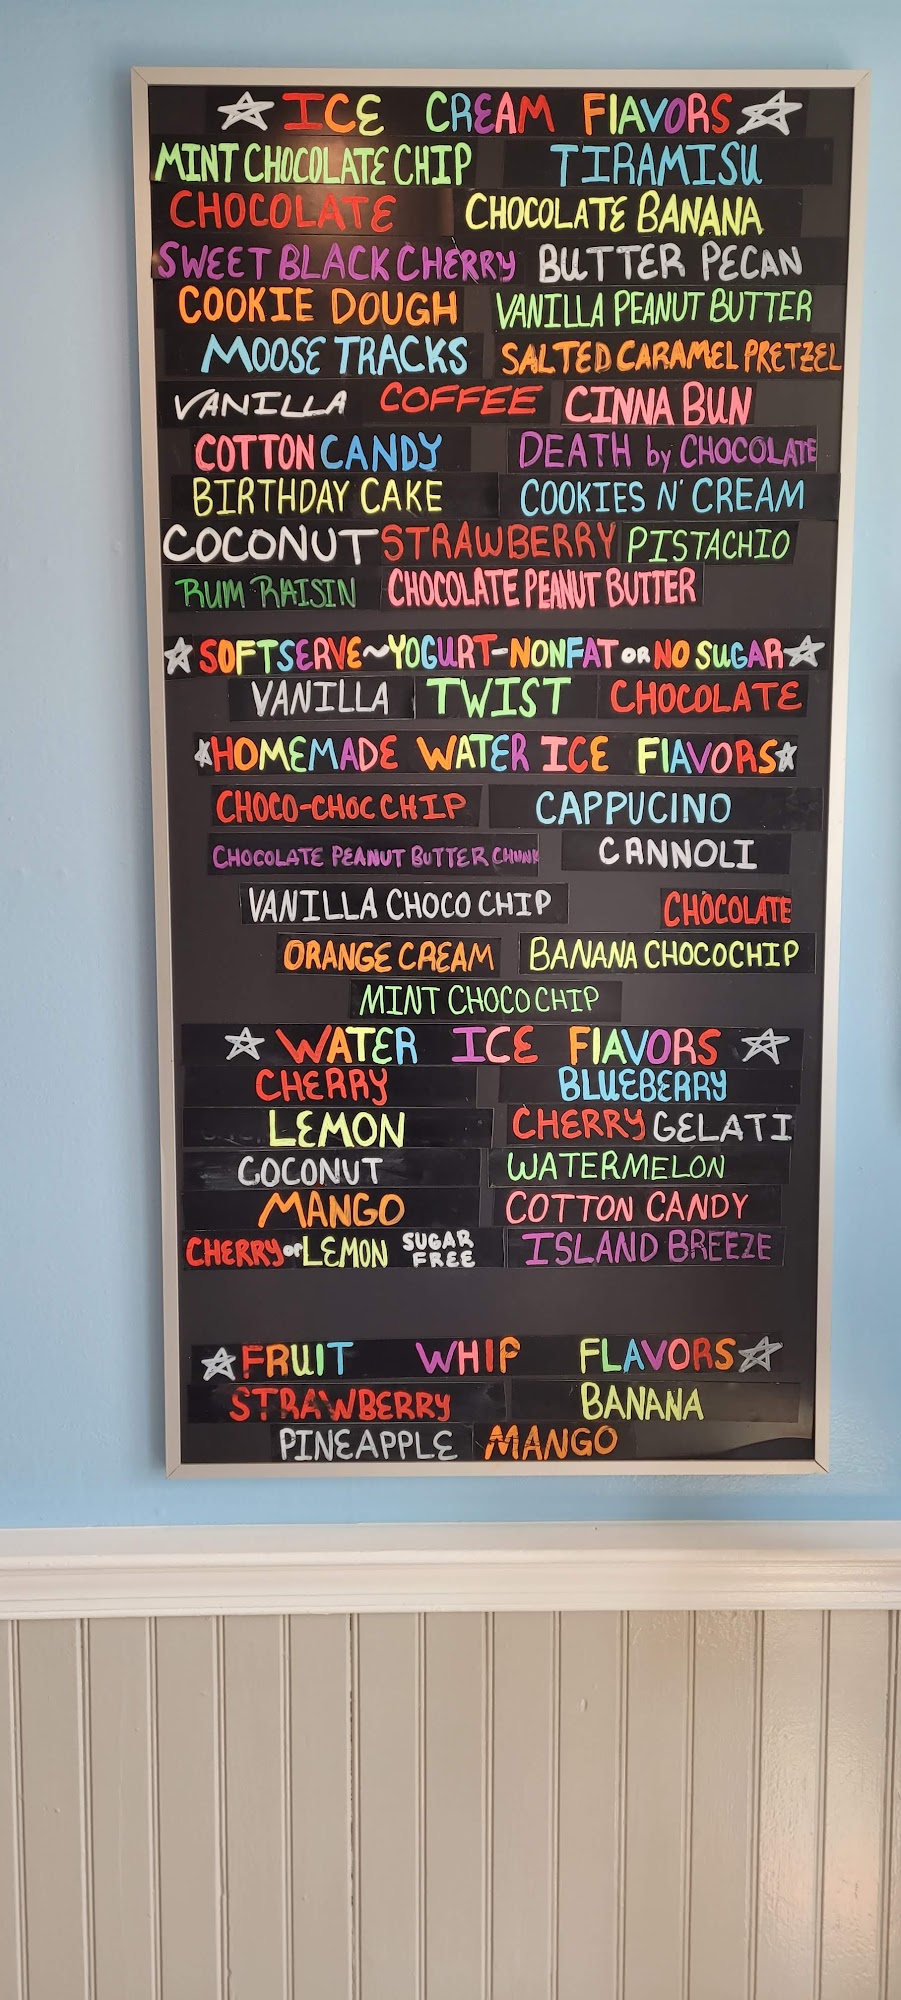 ICE CREAM FLAVORS
MINT CHOCOLATE CHIP TIRAMISU
CHOCOLATE CHOCOLATE BANANA
SWEET BLACK CHERRY BUTTER PECAN
COOKIE DOUGH VANILLA PEANUT BUTTER
MOOSE TRACKS SALTED CARAMEL PRETZEL
VANILLA COFFEE CINNA BUN
COTTON CANDY DEATH by CHOCOLATE
BIRTHDAY CAKE COOKIES N' CREAM
COCONUT STRAWBERRY PISTACHIO
RUM RAISIN CHOCOLATE PEANUT BUTTER
SOFTSERVE~YOGURT-NONFAT OR NO SUGAR
VANILLA TWIST CHOCOLATE
HOMEMADE WATER ICE FLAVORS
CHOCO-CHOC CHIP CAPPUCINO
CHOCOLATE PEANUT BUTTER CHUNK CANNOLI
VANILLA CHOCO CHIP CHOCOLATE
ORANGE CREAM BANANA CHOCOCHIP
MINT CHOCO CHIP
WATER ICE FLAVORS
CHERRY BLUEBERRY
LEMON CHERRY GELATI
COCONUT WATERMELON
MANGO COTTON CANDY
CHERRY or LEMON SUGAR FREE ISLAND BREEZE
FRUIT WHIP FLAVORS
STRAWBERRY BANANA
PINEAPPLE MANGO